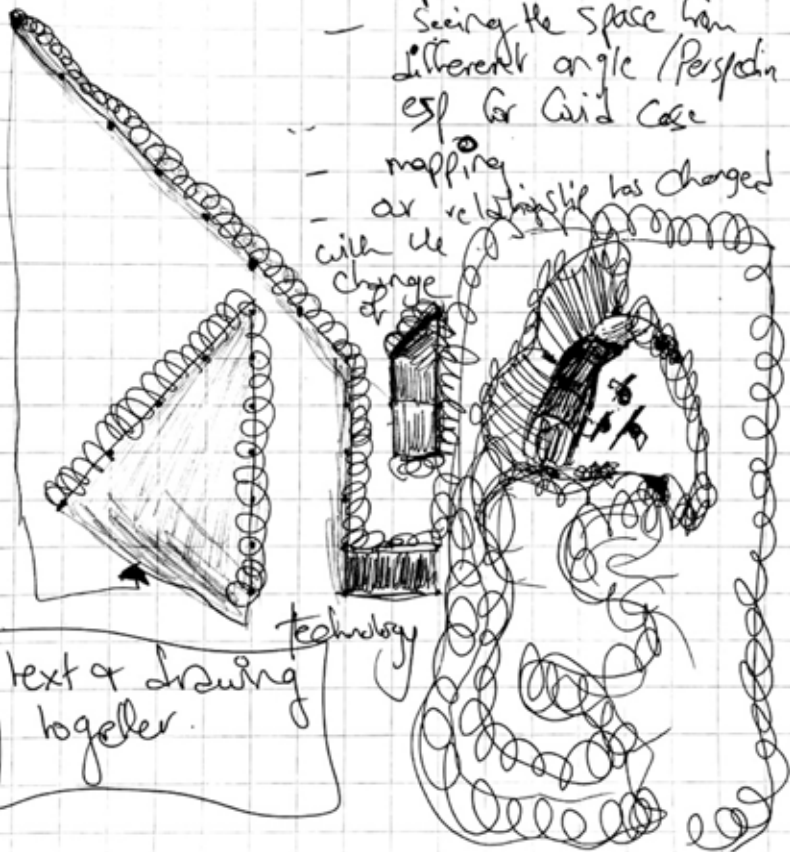 — Seeing the space from
different angle / Perspectiv
esp for Covid Case
— mapping
— our relationship has changed
with the
change
of
technology
text & drawing
together.